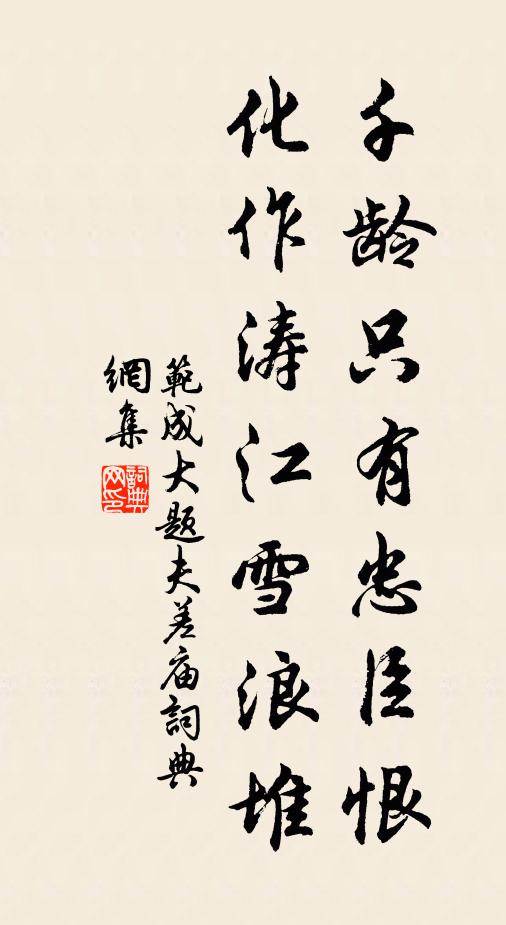 千龄只有忠臣恨
化作涛江雪浪堆
範成大题夫差庙詞典
網集
詞典
网印